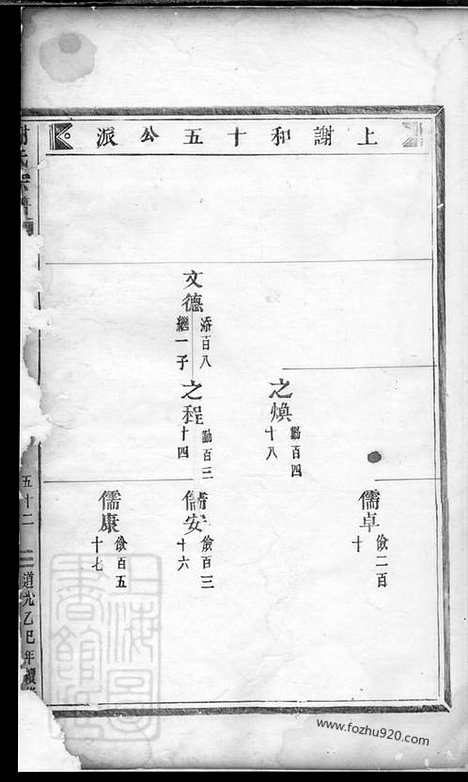 上謝和十五公派
之煥
勤百四
十八
儒卓
儉二百
十
文德
添百八
繼一子
之程
勤百三
十四
儒安
儉百三
十六
儒康
儉百五
十七
五十二
道光乙巳年續
上海圖書館藏
www.fozhu920.com